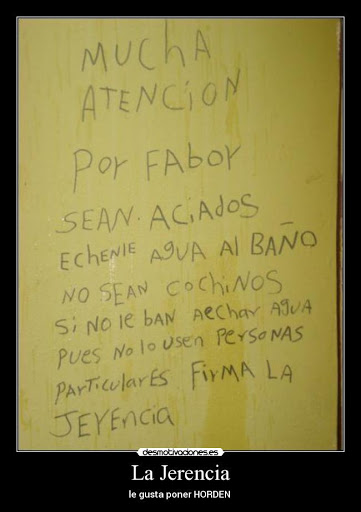 MUChA
ATENCION
POr FABOr
SEAN. ACiADOS
EchENlE AgUA Al BAÑO
NO SEAN COChiNOS
Si NO le BAN AEchAr AgUA
PUES No lo USEN PErSONAS
PArticulArES FirMA LA
JErENCiA
desmotivaciones.es
La Jerencia
le gusta poner HORDEN